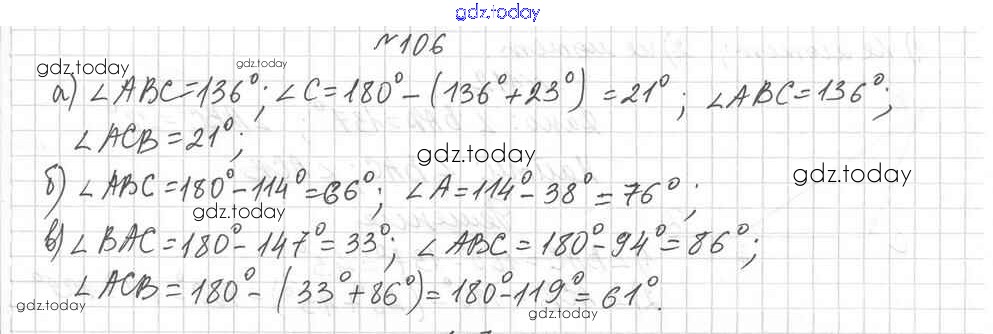 gdz.today
№106
gdz.today gdz.today
а) ∠ABC=136°; ∠C=180°-(136°+23°)=21°; ∠ABC=136°;
∠ACB=21°;
gdz.today
gdz.today
б) ∠ABC=180°-114°=66°; ∠A=114°-38°=76°;
gdz.today
в) ∠BAC=180°-147°=33°; ∠ABC=180°-94°=86°;
∠ACB=180°-(33°+86°)=180°-119°=61°.
gdz.today
gdz.today
gdz.today